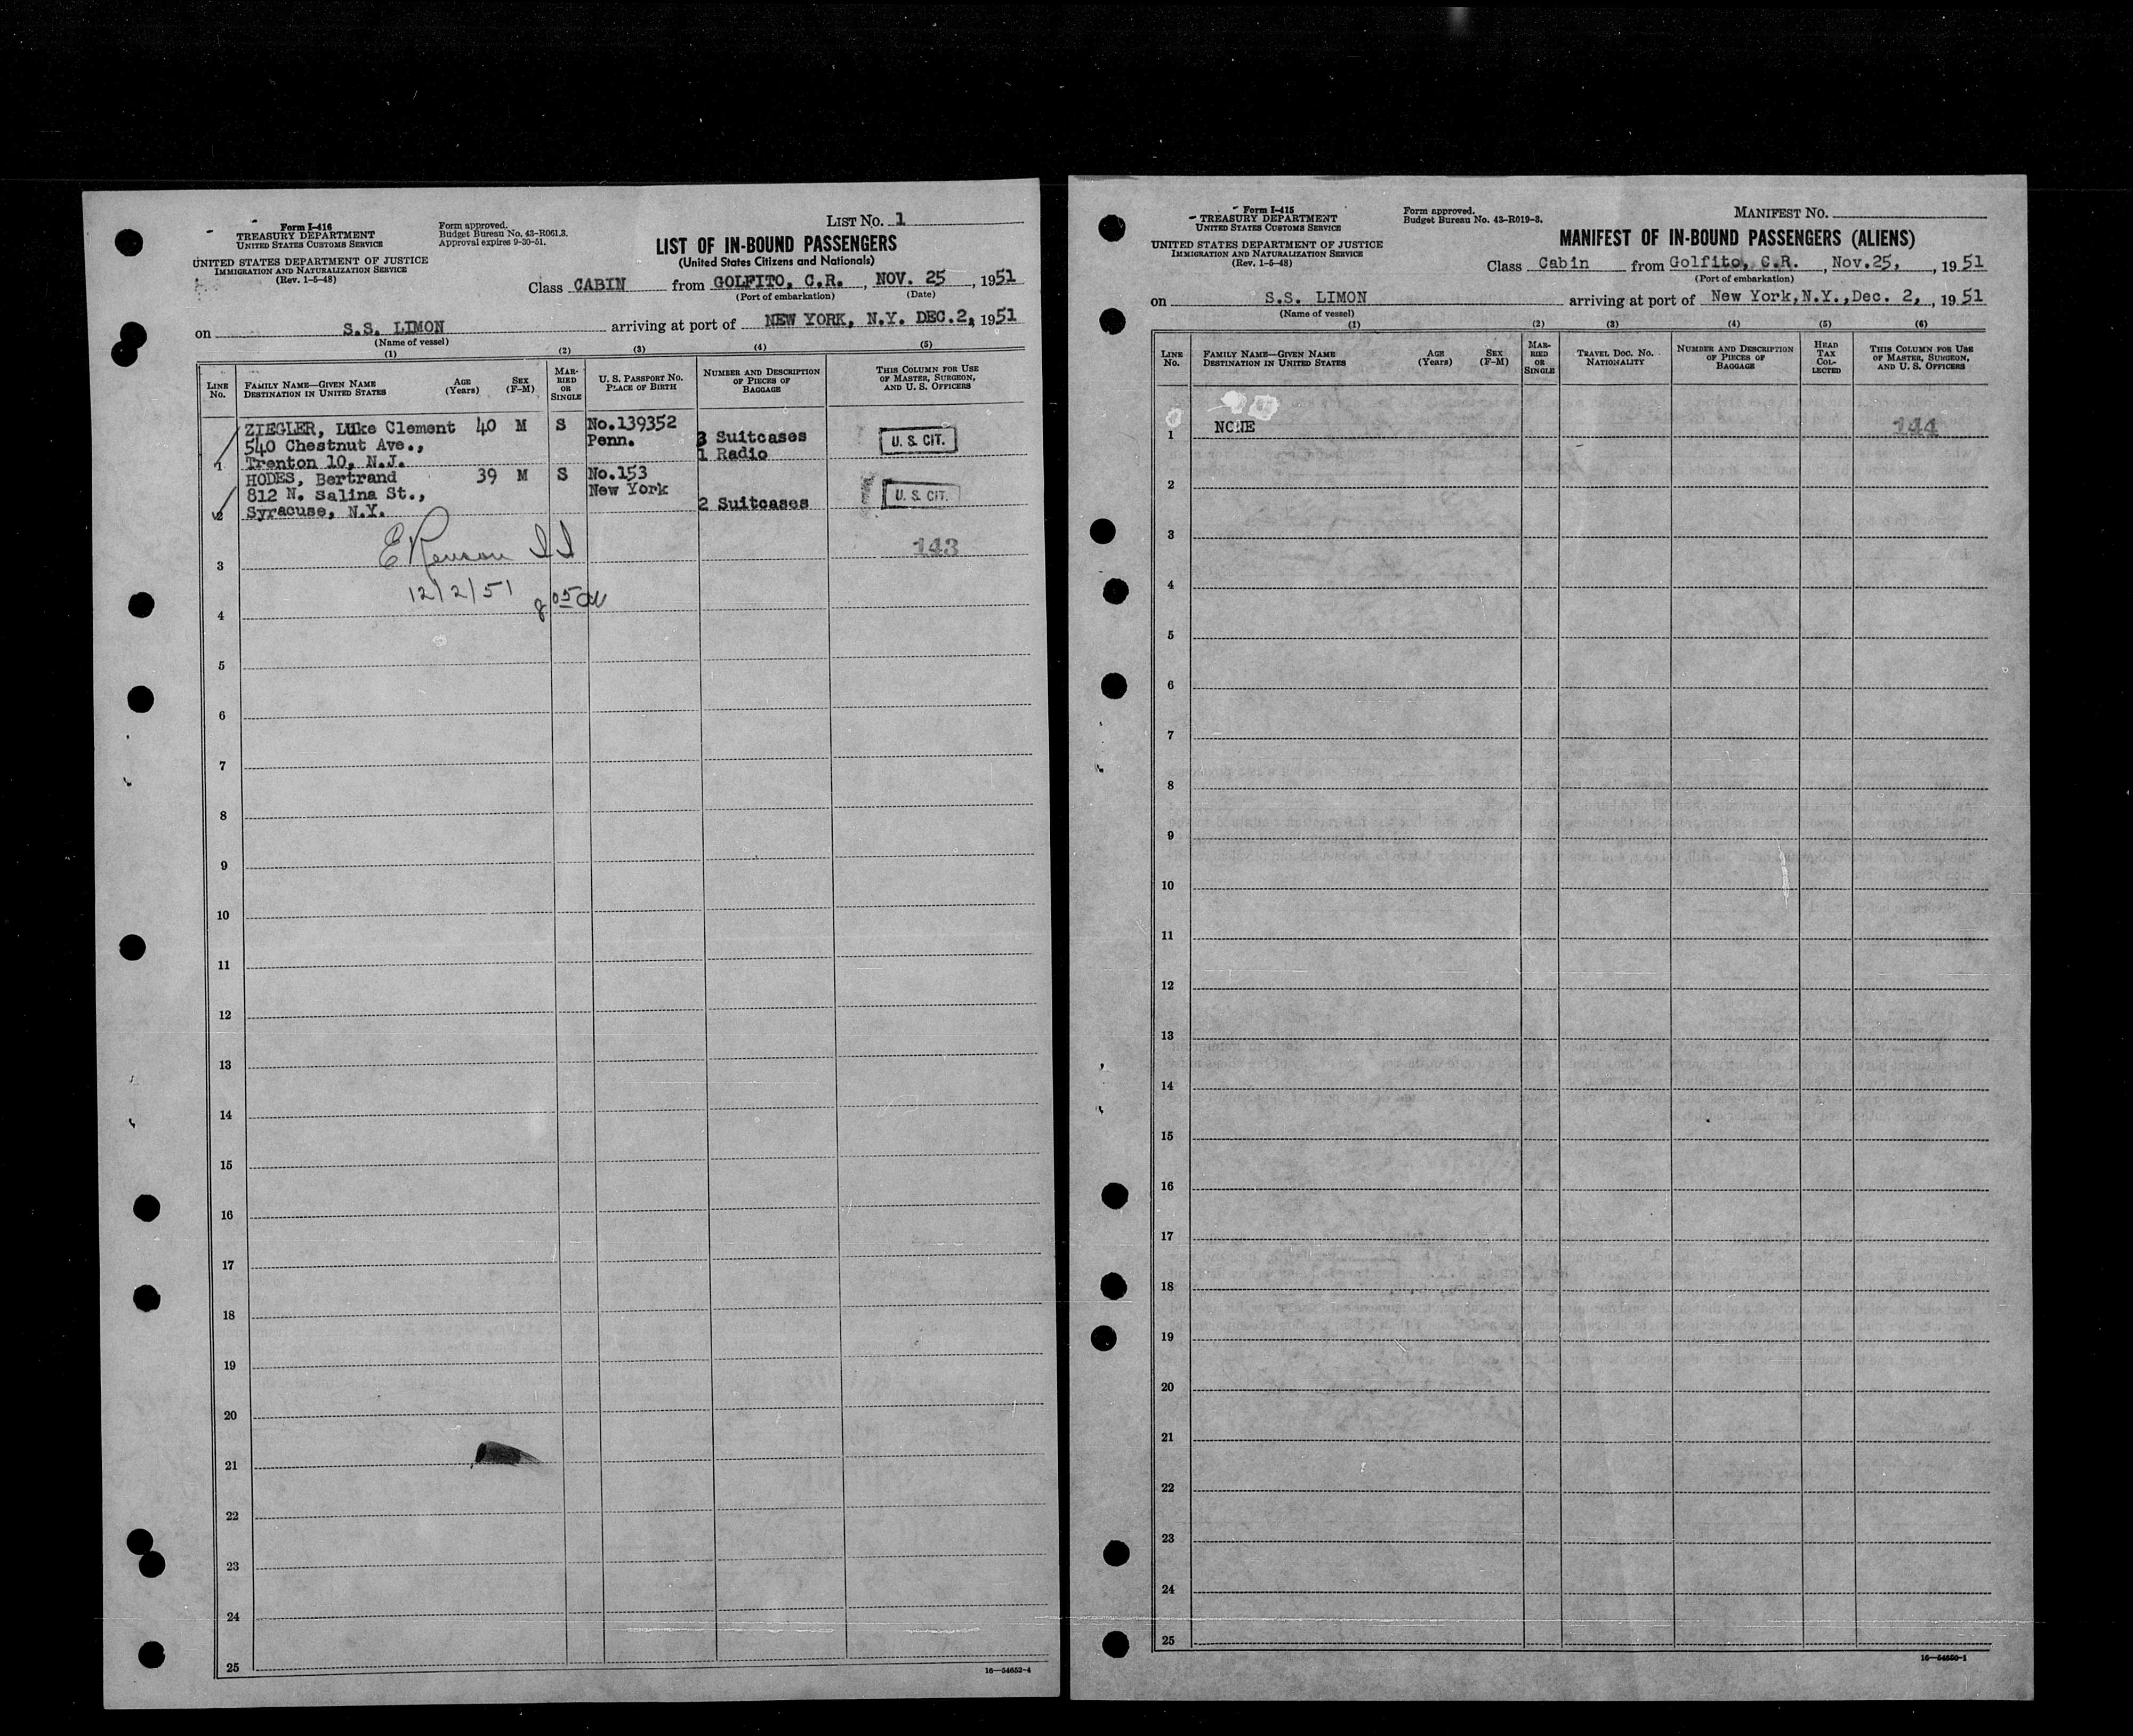 Form I-416
TREASURY DEPARTMENT
UNITED STATES CUSTOMS SERVICE
UNITED STATES DEPARTMENT OF JUSTICE
IMMIGRATION AND NATURALIZATION SERVICE
(Rev. 1-5-48)
Form approved.
Budget Bureau No. 43-R061.3.
Approval expires 9-30-51.
LIST NO. 1
LIST OF IN-BOUND PASSENGERS
(United States Citizens and Nationals)
Class CABIN from GOLFITO, C.R., NOV. 25, 1951
(Port of embarkation) (Date)
on S.S. LIMON arriving at port of NEW YORK, N.Y. DEC.2, 1951
(Name of vessel)
(1) (2) (3) (4) (5)
LINE NO.
FAMILY NAME—GIVEN NAME
DESTINATION IN UNITED STATES
AGE (Years)
SEX (F-M)
MARRIED OR SINGLE
U. S. PASSPORT NO.
PLACE OF BIRTH
NUMBER AND DESCRIPTION OF PIECES OF BAGGAGE
THIS COLUMN FOR USE OF MASTER, SURGEON, AND U. S. OFFICERS
ZIEGLER, Luke Clement 40 M S No.139352
540 Chestnut Ave., Penn. 3 Suitcases U. S. CIT.
1 Trenton 10, N.J. 1 Radio
HODES, Bertrand 39 M S No.153
812 N. Salina St., New York U. S. CIT.
2 Syracuse, N.Y. 2 Suitcases
143
3
12/2/51
4
5
6
7
8
9
10
11
12
13
14
15
16
17
18
19
20
21
22
23
24
25
16—54652-4
Form I-415
TREASURY DEPARTMENT
UNITED STATES CUSTOMS SERVICE
UNITED STATES DEPARTMENT OF JUSTICE
IMMIGRATION AND NATURALIZATION SERVICE
(Rev. 1-5-48)
Form approved.
Budget Bureau No. 43-R019-3.
MANIFEST NO.
MANIFEST OF IN-BOUND PASSENGERS (ALIENS)
Class Cabin from Golfito, C.R., Nov.25, , 1951
(Port of embarkation)
on S.S. LIMON arriving at port of New York,N.Y.,Dec. 2, , 1951
(Name of vessel)
(1) (2) (3) (4) (5) (6)
LINE NO.
FAMILY NAME—GIVEN NAME
DESTINATION IN UNITED STATES
AGE (Years)
SEX (F-M)
MARRIED OR SINGLE
TRAVEL DOC. NO.
NATIONALITY
NUMBER AND DESCRIPTION OF PIECES OF BAGGAGE
HEAD TAX COLLECTED
THIS COLUMN FOR USE OF MASTER, SURGEON, AND U. S. OFFICERS
1 NONE 144
2
3
4
5
6
7
8
9
10
11
12
13
14
15
16
17
18
19
20
21
22
23
24
25
16—54650-1